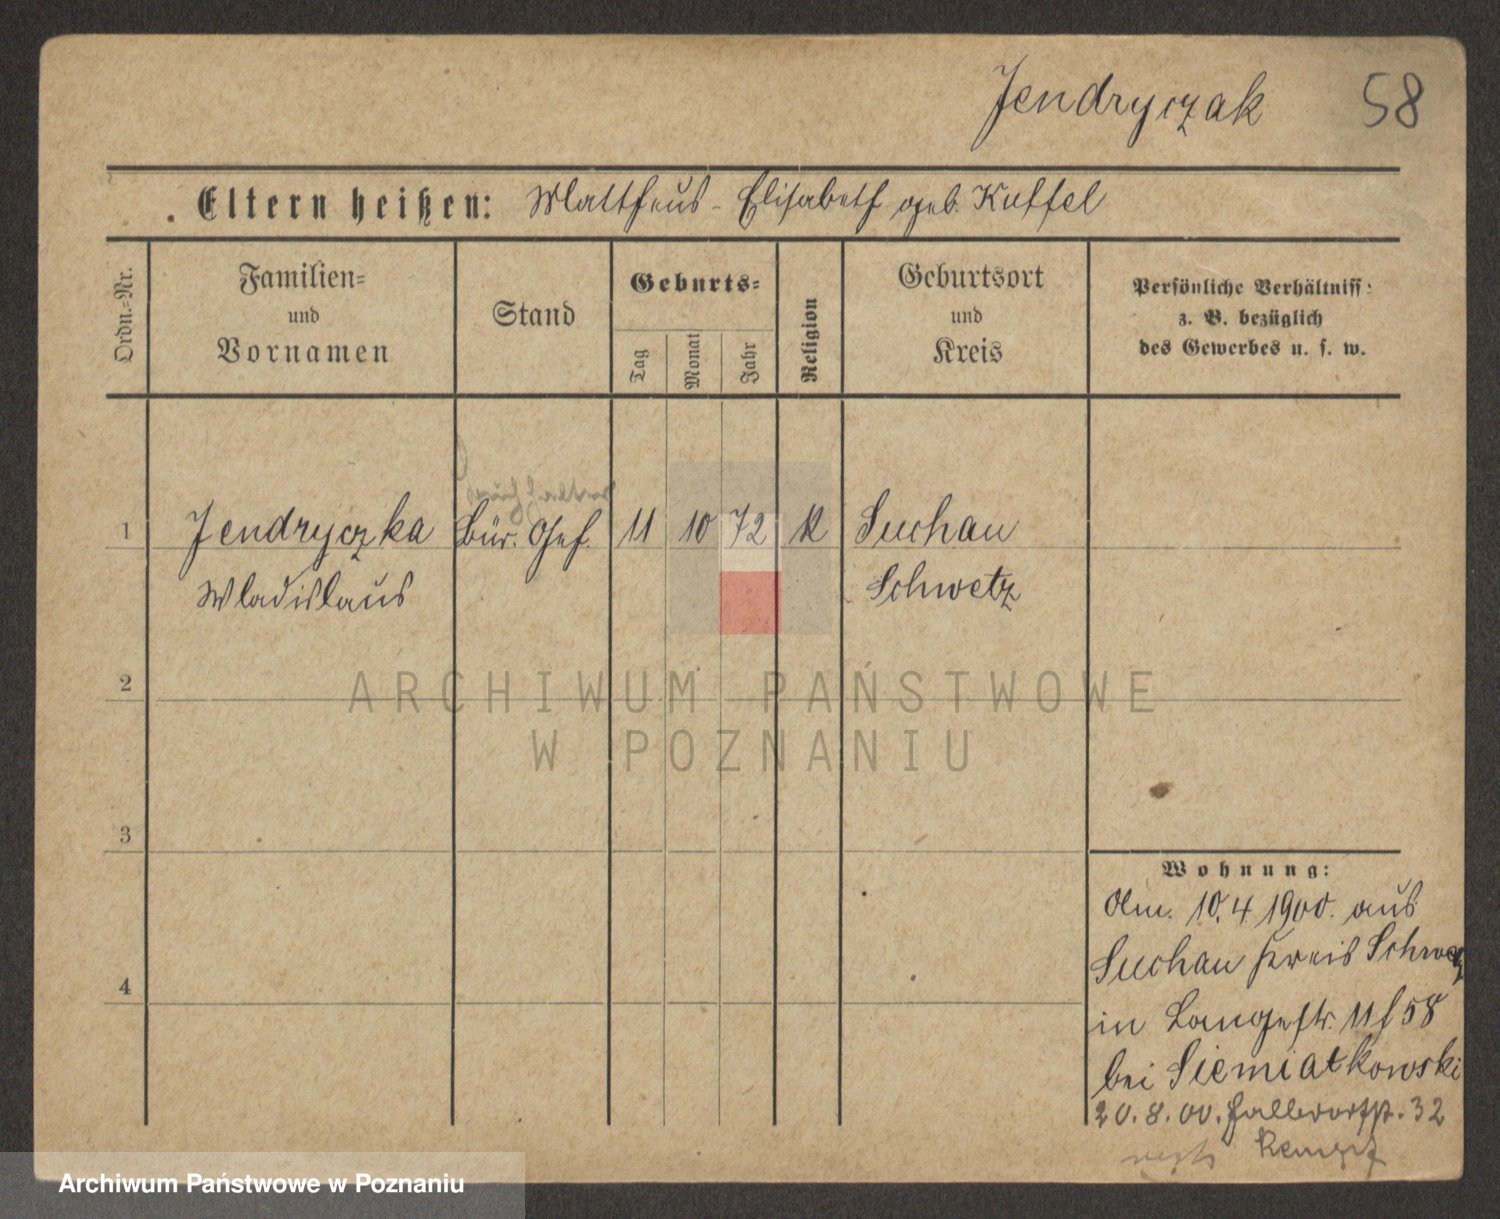 Jendryczak 58
Eltern heißen: Mattheus - Elisabeth geb. Kuffel
Ordn.-Nr.
Familien-
und
Vornamen
Stand
Geburts-
Tag
Monat
Jahr
Religion
Geburtsort
und
Kreis
Persönliche Verhältniss:
z. B. bezüglich
des Gewerbes u. s. w.
1 Jendryczka Bür. Geh. 11 10 72 K Suchau
Wladislaus Schwetz
2
ARCHIWUM PAŃSTWOWE
W POZNANIU
3
Wohnung:
10.4 1900. aus
Suchau Kreis Schwetz
4
in Langestr. 11 / 58
bei Siemiatkowski
20.8.00. 32
Archiwum Państwowe w Poznaniu